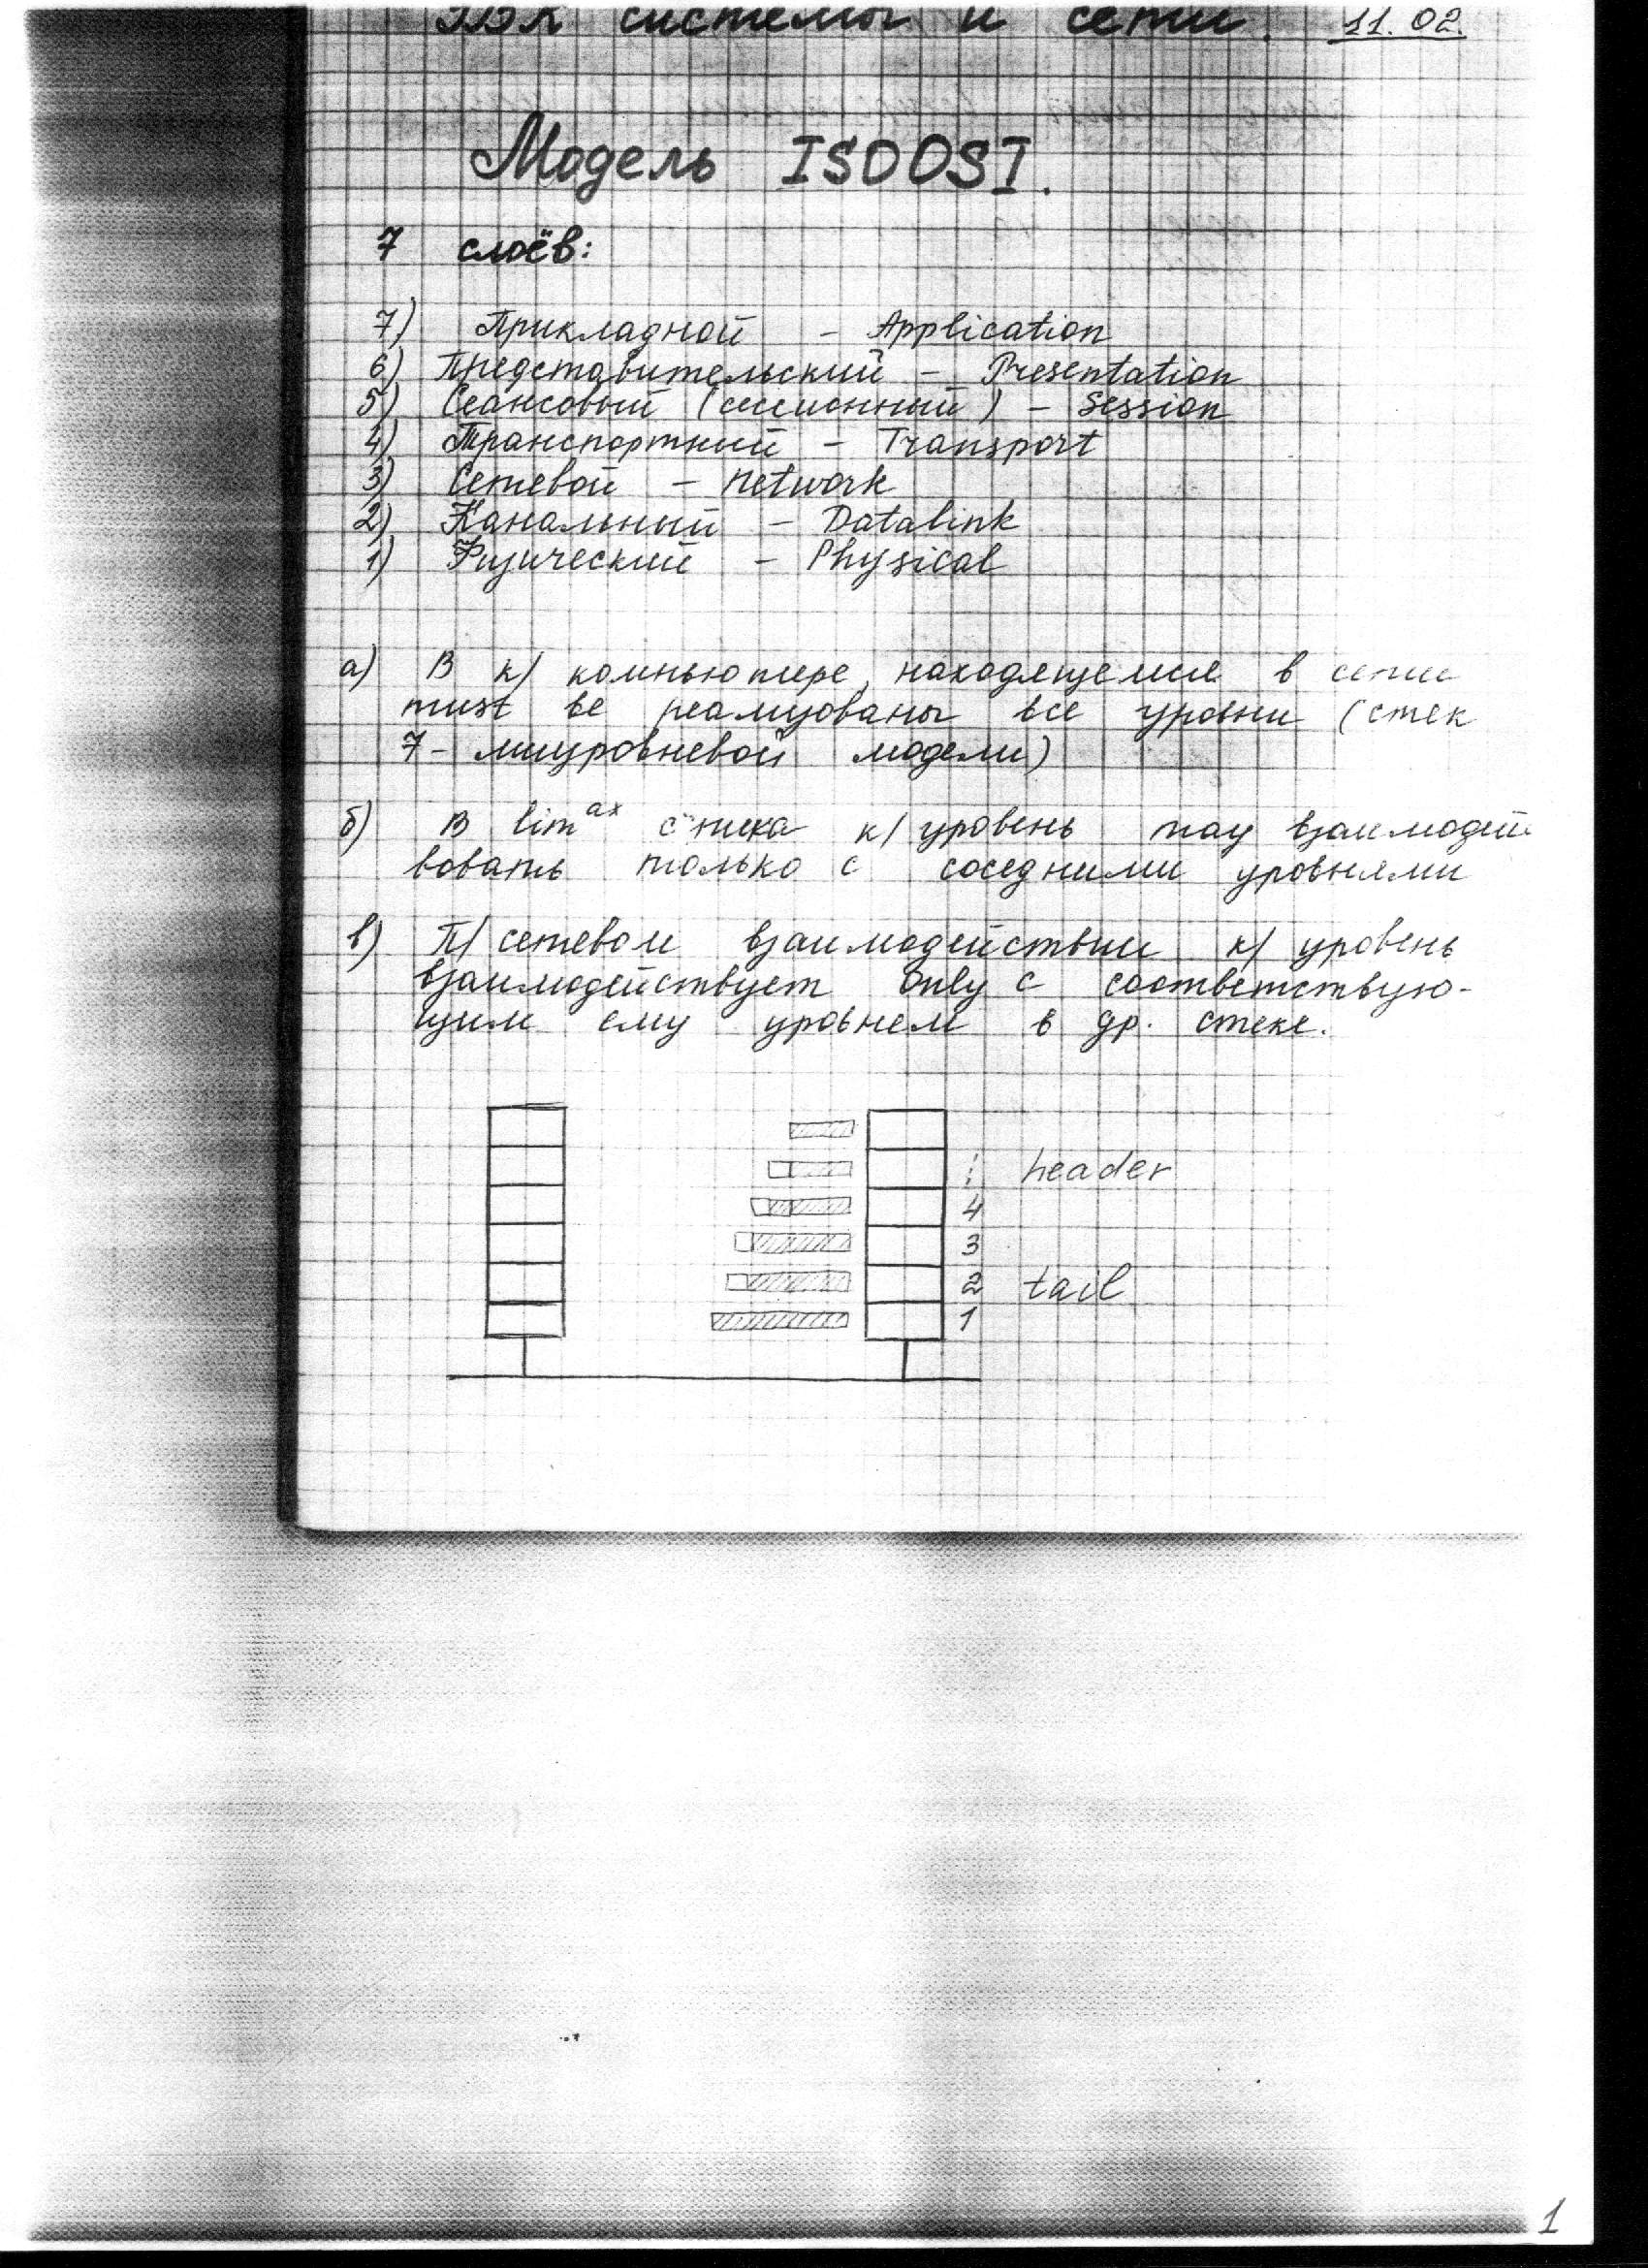 системы и сети. 11.02.
Модель ISOOSI.
7 слоёв:
7) Прикладной - Application
6) Представительский - Presentation
5) Сеансовый (сессионный) - Session
4) Транспортный - Transport
3) Сетевой - Network
2) Канальный - Datalink
1) Физический - Physical
а) В к/ компьютере, находящемся в сети
must be реализованы все уровни (стек
7-миуровневой модели)
б) В lim ах стека к/ уровень may взаимодей
вовать только с соседними уровнями
в) П/ сетевом взаимодействии к/ уровень
взаимодействует only с соответствую-
щим ему уровнем в др. стеке.
header
4
3
2 tail
1
1